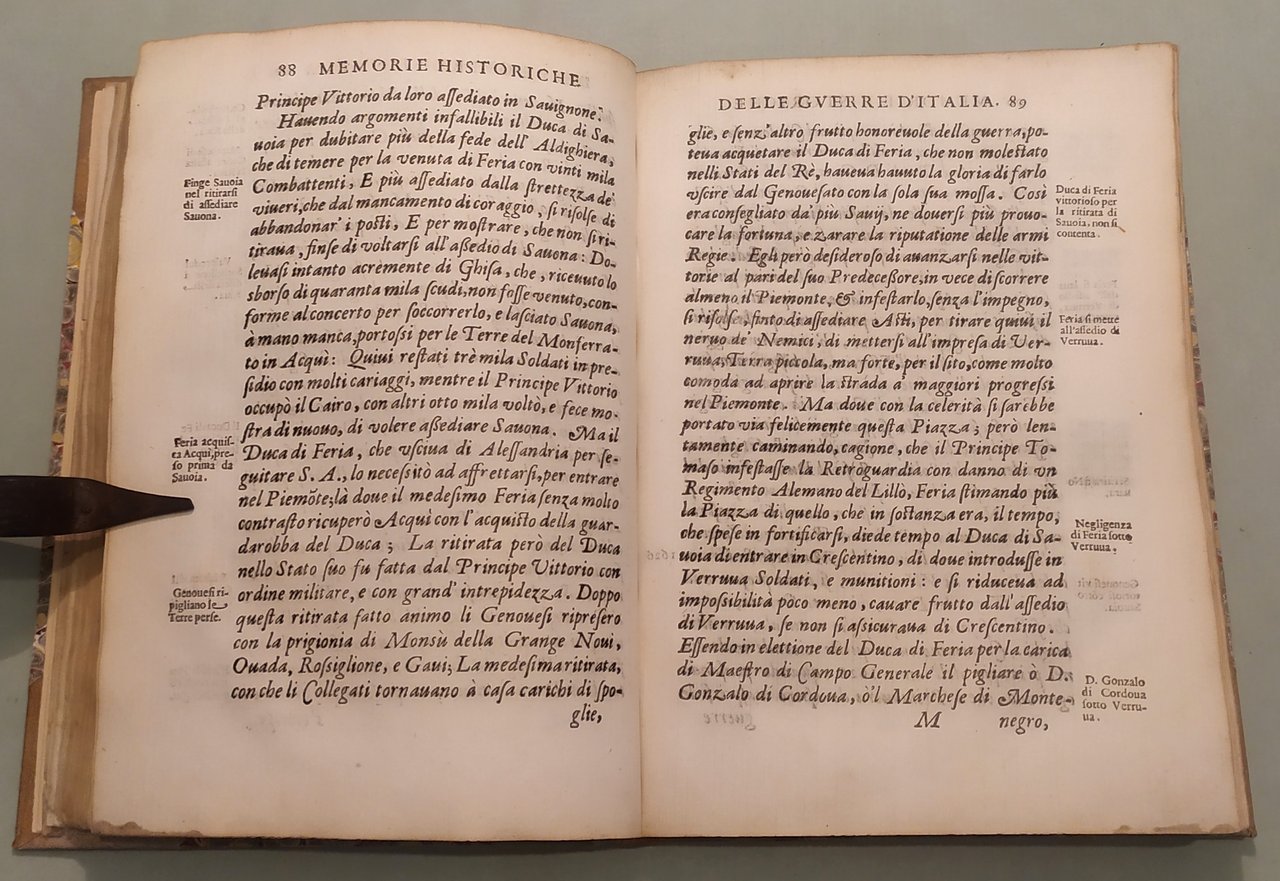 88 MEMORIE HISTORICHE
Principe Vittorio da loro aſſediato in Sauignone.
Hauendo argomenti infallibili il Duca di Sa-
uoia per dubitare più della fede dell' Aldighiera,
che di temere per la venuta di Feria con vinti mila
Combattenti, E più aſſediato dalla ſtrettezza de'
viueri, che dal mancamento di coraggio, ſi riſolſe di
abbandonar' i poſti, E per moſtrare, che non ſi ri-
tiraua, finſe di voltarſi all' aſſedio di Sauona: Do-
leuaſi intanto acremente di Ghiſa, che, riceuuto lo
sborſo di quaranta mila ſcudi, non foſſe venuto, con-
forme al concerto per ſoccorrerlo, e laſciato Sauona,
à mano manca, portoſſi per le Terre del Monferra-
to in Acquì: Quiui reſtati trè mila Soldati in pre-
ſidio con molti cariaggi, mentre il Principe Vittorio
occupò il Cairo, con altri otto mila voltò, e fece mo-
ſtra di nuouo, di volere aſſediare Sauona. Ma il
Duca di Feria, che vſciua di Aleſſandria per ſe-
guitare S. A., lo neceſſitò ad affrettarſi, per entrare
nel Piemōte; là doue il medeſimo Feria ſenza molto
contraſto ricuperò Acquì con l'acquiſto della guar-
darobba del Duca; La ritirata però del Duca
nello Stato ſuo fu fatta dal Principe Vittorio con
ordine militare, e con grand' intrepidezza. Doppo
queſta ritirata fatto animo li Genoueſi ripreſero
con la prigionia di Monsù della Grange Noui,
Ouada, Roſſiglione, e Gaui; La medeſima ritirata,
con che li Collegati tornauano à caſa carichi di ſpo-
glie,
Finge Sauoia
nel ritirarſi
di aſſediare
Sauona.
Feria acquiſ-
ta Acqui, pre-
ſo prima da
Sauoia.
Genoueſi ri-
pigliano le
Terre perſe.
DELLE GVERRE D'ITALIA. 89
glie, e ſenz' altro frutto honoreuole della guerra, po-
teua acquetare il Duca di Feria, che non moleſtato
nelli Stati del Rè, haueua hauuto la gloria di farlo
vſcire dal Genoueſato con la ſola ſua moſſa. Così
era conſegliato da' più Sauij, ne douerſi più prouo-
care la fortuna, e zarare la riputatione delle armi
Regie. Egli però deſideroſo di auanzarſi nelle vit-
torie al pari del ſuo Predeceſſore, in vece di ſcorrere
almeno il Piemonte, & infeſtarlo, ſenza l'impegno,
ſi riſolſe, finto di aſſediare Aſti, per tirare quiui il
neruo de' Nemici, di metterſi all'impreſa di Ver-
ruua, Terra piccola, ma forte, per il ſito, come molto
comoda ad aprire la ſtrada a' maggiori progreſſi
nel Piemonte. Ma doue con la celerità ſi ſarebbe
portato via felicemente queſta Piazza; però len-
tamente caminando, cagione, che il Principe To-
maſo infeſtaſſe la Retroguardia con danno di vn
Regimento Alemano del Lillò, Feria ſtimando più
la Piazza di quello, che in ſoſtanza era, il tempo,
che ſpeſe in fortificarſi, diede tempo al Duca di Sa-
uoia di entrare in Creſcentino, di doue introduſſe in
Verruua Soldati, e munitioni: e ſi riduceua ad
impoſſibilità poco meno, cauare frutto dall' aſſedio
di Verruua, ſe non ſi aſſicuraua di Creſcentino.
Eſſendo in elettione del Duca di Feria per la carica
di Maeſtro di Campo Generale il pigliare ò D.
Gonzalo di Cordoua, ò'l Marcheſe di Monte-
M negro,
Duca di Feria
vittorioſo per
la ritirata di
Sauoia, non ſi
contenta.
Feria ſi mette
all'aſſedio di
Verruua.
Negligenza
di Feria ſotto
Verruua.
D. Gonzalo
di Cordoua
ſotto Verru-
ua.